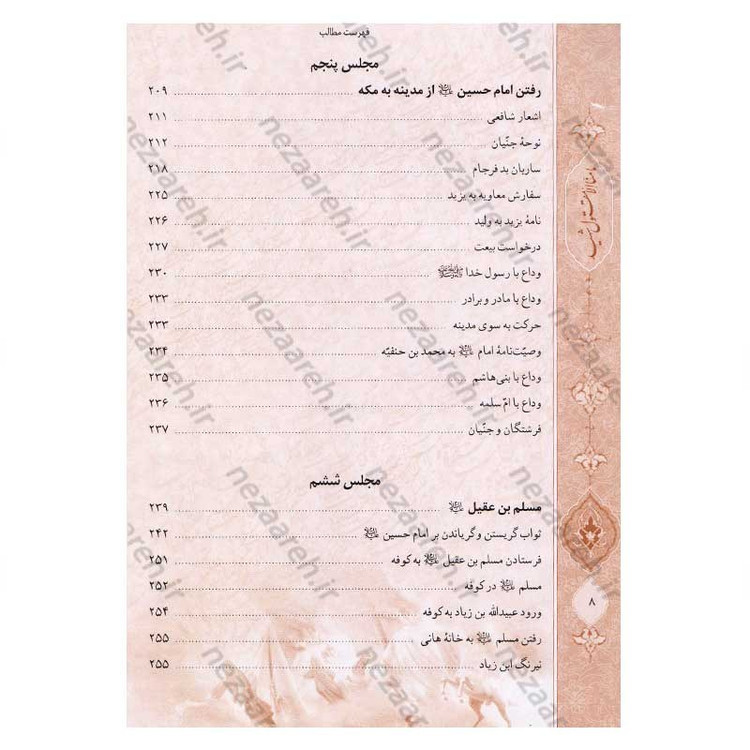 فهرست مطالب
مجلس پنجم
رفتن امام حسین علیه‌السلام از مدینه به مکه ........ ۲۰۹
اشعار شافعی ........ ۲۱۱
نوحهٔ جنّیان ........ ۲۱۲
ساربان بد فرجام ........ ۲۱۸
سفارش معاویه به یزید ........ ۲۲۵
نامهٔ یزید به ولید ........ ۲۲۶
درخواست بیعت ........ ۲۲۷
وداع با رسول خدا ﷺ ........ ۲۳۰
وداع با مادر و برادر ........ ۲۳۳
حرکت به سوی مدینه ........ ۲۳۳
وصیّت‌نامهٔ امام علیه‌السلام به محمد بن حنفیّه ........ ۲۳۴
وداع با بنی‌هاشم ........ ۲۳۵
وداع با امّ سلمه ........ ۲۳۶
فرشتگان و جنّیان ........ ۲۳۷
مجلس ششم
مسلم بن عقیل علیه‌السلام ........ ۲۳۹
ثواب گریستن و گریاندن بر امام حسین علیه‌السلام ........ ۲۴۲
فرستادن مسلم بن عقیل علیه‌السلام به کوفه ........ ۲۵۱
مسلم علیه‌السلام در کوفه ........ ۲۵۲
ورود عبیدالله بن زیاد به کوفه ........ ۲۵۴
رفتن مسلم علیه‌السلام به خانهٔ هانی ........ ۲۵۵
نیرنگ ابن زیاد ........ ۲۵۵
۸
nezaareh.ir